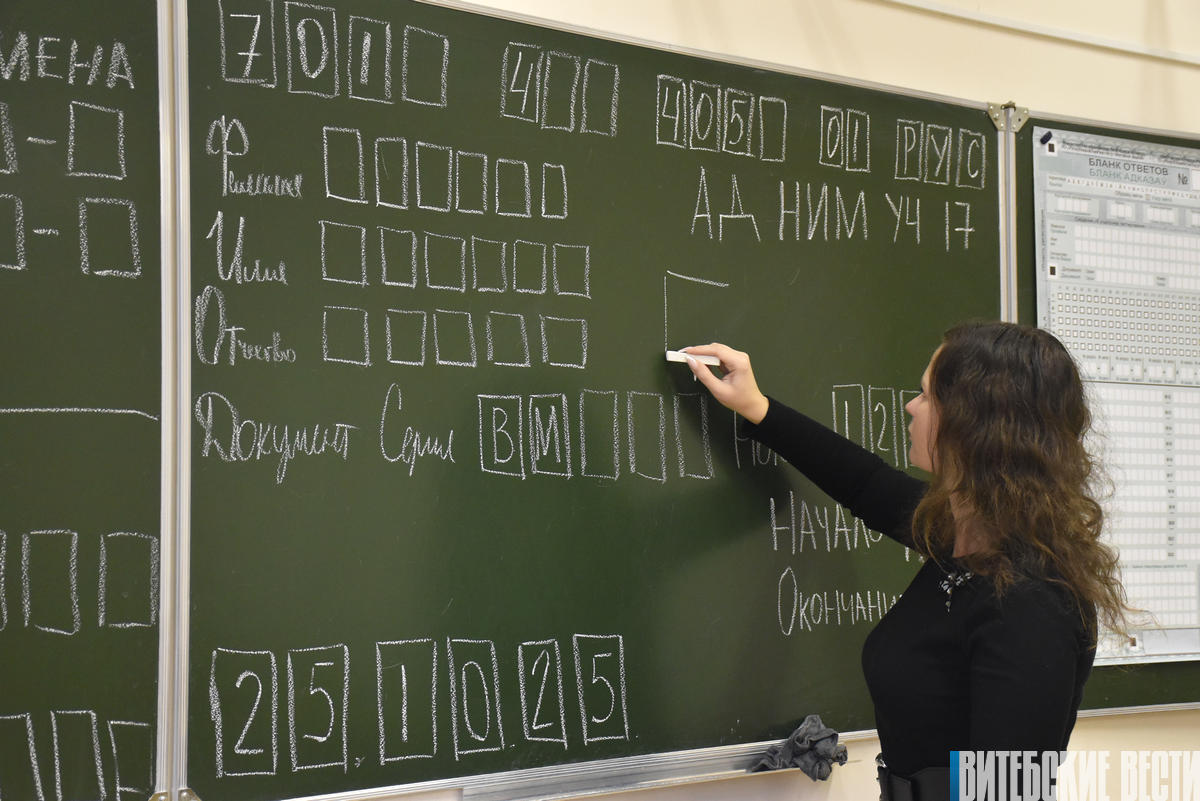 МЕНА
701 4 405 01 РУС
АД НИМ УЧ 17
Фамилия
Имя
Отчество
Документ Серия ВМ 12
НАЧАЛО
ОКОНЧАНИ
25.10.25
БЛАНК ОТВЕТОВ
БЛАНК АДКАЗАЎ
№
ВИТЕБСКИЕ ВЕСТИ